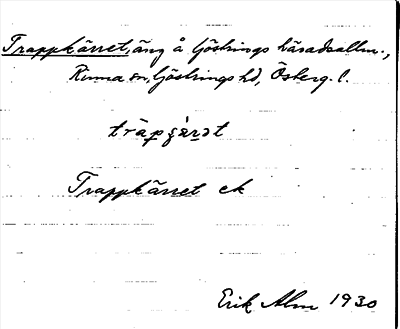 Trappkärret, äng å Göstrings häradsallm.,
Rinna sn, Göstrings hd, Österg. l.
Trappkärret ek
Erik Alm 1930